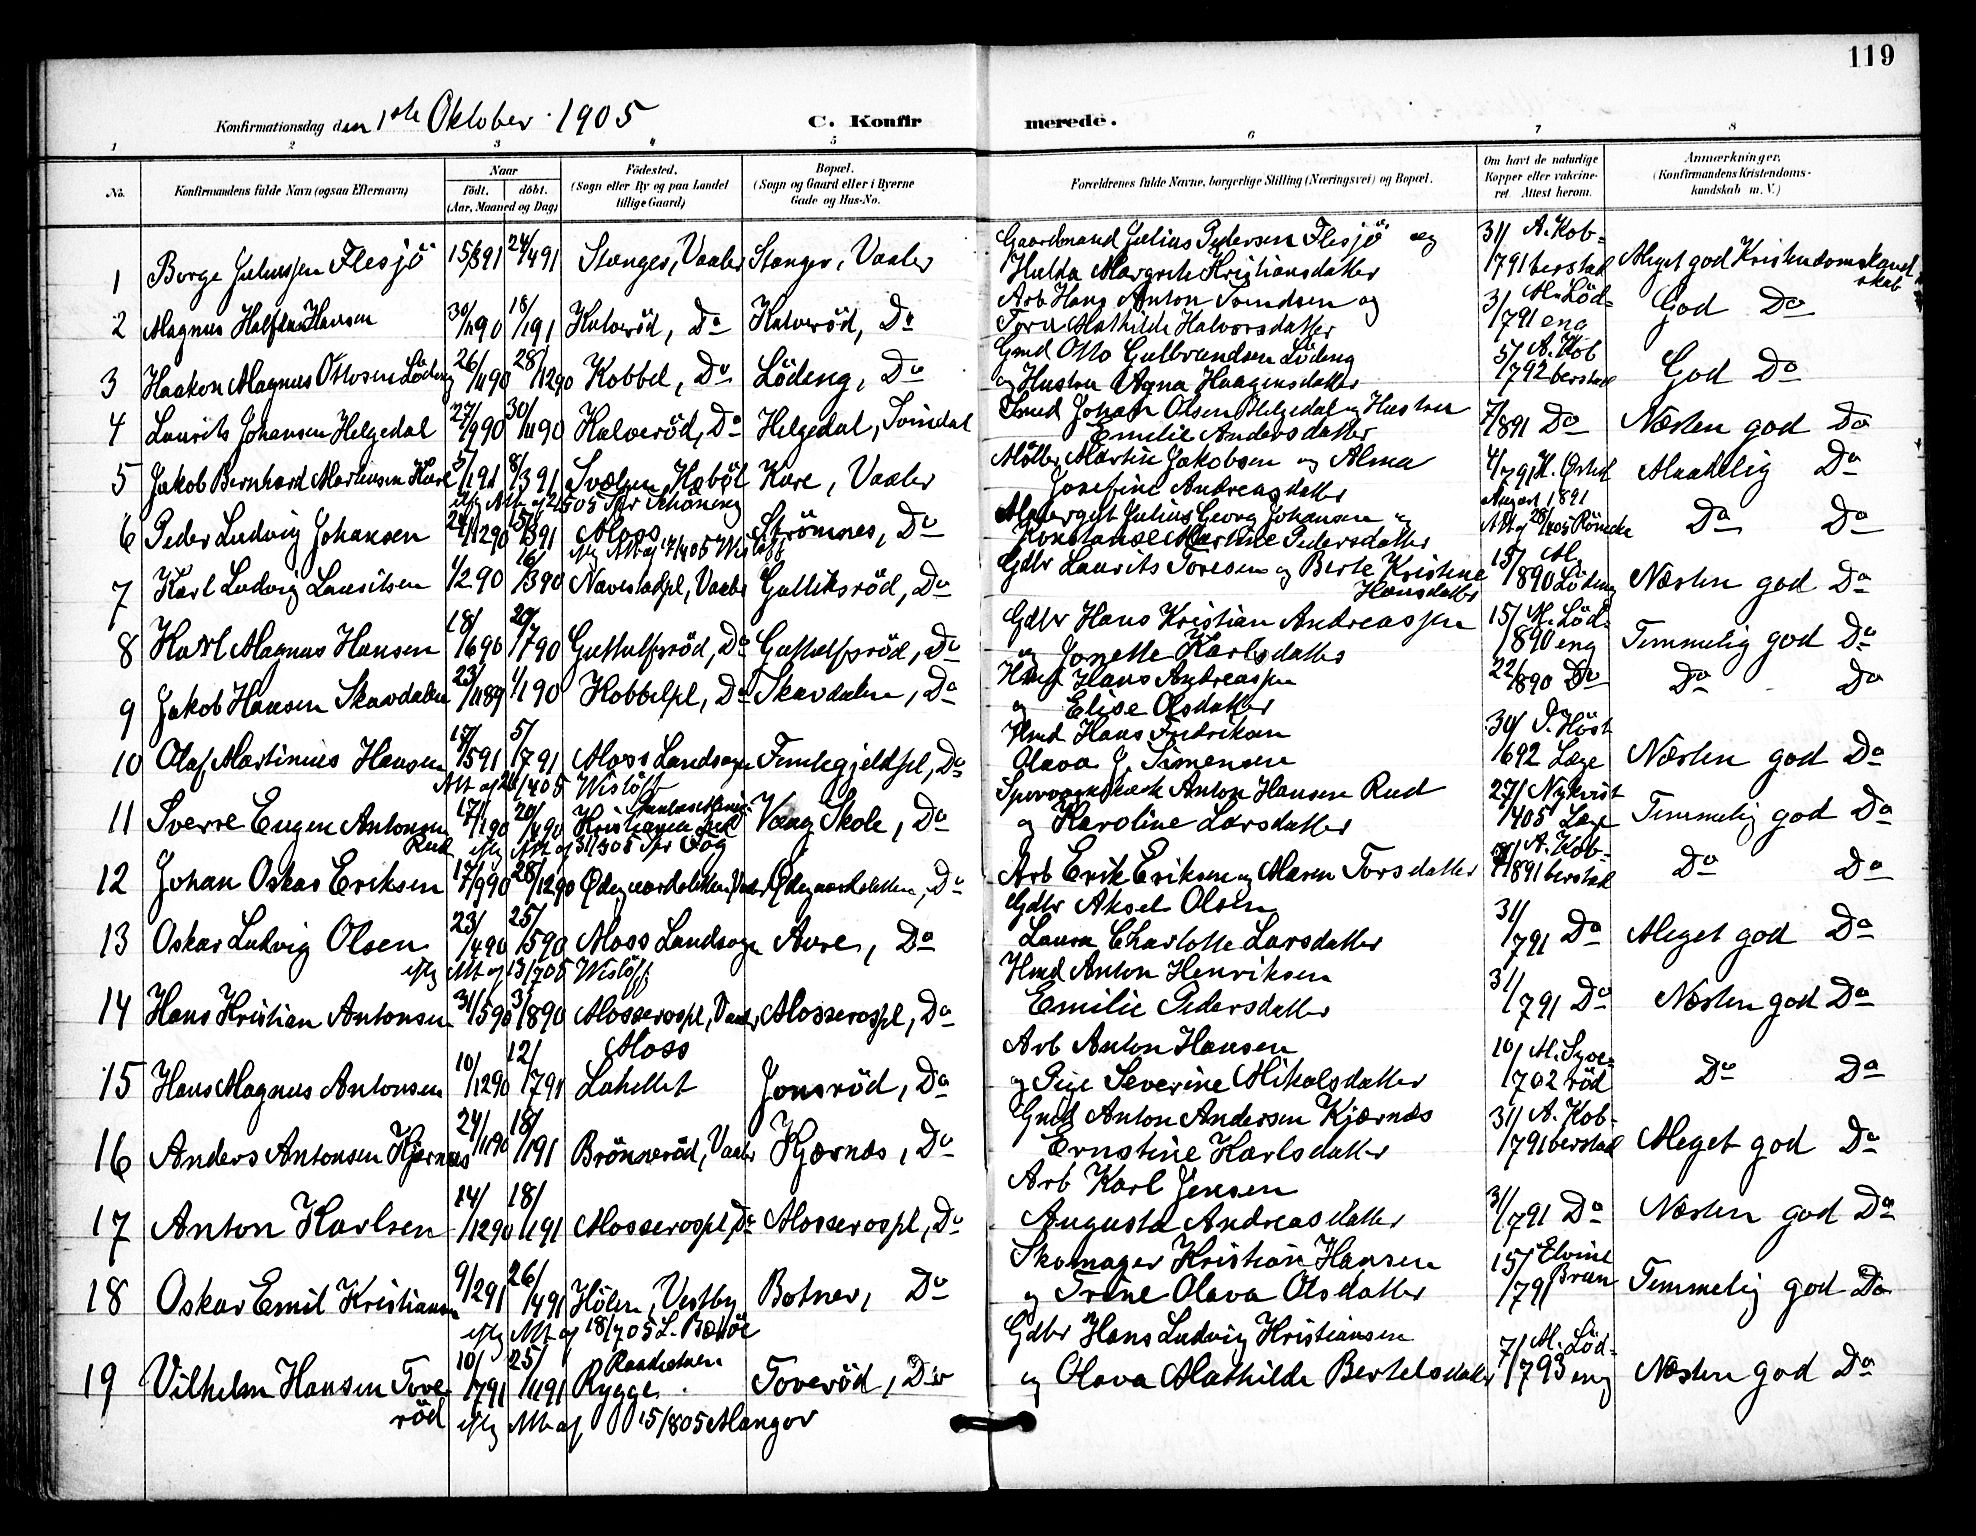 119
Konfirmationsdag den 1ste Oktober 1905 C. Konfirmerede.
1 2 3 4 5 6 7 8
No.
Konfirmandens fulde Navn (ogsaa Efternavn)
Naar
født. døbt.
(Aar, Maaned og Dag)
Fødested.
(Sogn eller By og paa Landet
tillige Gaard)
Bopæl.
(Sogn og Gaard eller i Byerne
Gade og Hus-No.
Forældrenes fulde Navne, borgerlige Stilling (Næringsvei) og Bopæl.
Om havt de naturlige
Kopper eller vakcine-
ret. Attest herom.
Anmærkninger.
(Konfirmandens Kristendoms-
kundskab m. V.)
1 Borge Juliussen Flesjö 15/3 91 24/4 91 Stanger, Vaaler Stanger, Vaaler Gaardmand Julius Pedersen Flesjö og
Hulda Margrete Kristiansdatter 31/7 91 A. Kobberstad Meget god Kristendomskundskab
2 Magnus Halfdan Hansen 30/11 90 18/1 91 Kalveröd, Do Kalveröd, Do Arb Hans Anton Svendsen og
Tora Mathilde Halvorsdatter 3/7 91 M. Lödeng God Do
3 Haakon Magnus Ottosen Lödeng 26/11 90 28/12 90 Kobbel, Do Lödeng, Do Gmd Otto Gulbrandsen Lödeng
og Hustru Agna Haagensdatter 5/7 92 A. Kobberstad God Do
4 Laurits Johansen Helgedal 27/9 90 30/11 90 Kalveröd, Do Helgedal, Svindal Smed Johan Olsen Helgedal og Hustru
Emilie Andersdatter 7/8 91 Do Næsten god Do
5 Jakob Bernhard Martinsen Kure 5/1 91 8/3 91 Svælgen Hoböl Kure, Vaaler Möller Martin Jakobsen og Alma
Josefine Andreasdatter 4/7 91 K. Ørsted Maadelig Do
6 Peder Ludvig Johansen 24/12 90 15/3 91 Moss Strömnes, Do Julius Georg Johansen og
Konstanse Martine Pedersdatter August 1891
Att af 28/4 05 Do Do
7 Karl Ludvig Lauritsen 1/2 90 16/3 90 Navestadpl, Vaaler Gulliksröd, Do Gdbr Laurits Toresen og Berte Kristine
Hansdatter 15/8 90 M. Lödeng Næsten god Do
8 Karl Magnus Hansen 18/6 90 20/7 90 Guttulfsröd, Do Guttulfsröd, Do Gdbr Hans Kristian Andreassen
og Jonette Karlsdatter 15/8 90 M. Lödeng Temmelig god Do
9 Jakob Hansen Skavdalen 23/11 89 1/1 90 Kobbelpl, Do Skavdalen, Do Hans Andreassen
og Elise Olsdatter 22/8 90 Do Do Do
10 Olaf Martinius Hansen 15/5 91 5/7 91 Moss Landsogn Do Hmd Hans Fredriksen
Olava J. Simensen 30/6 92 P. Höst Læge Næsten god Do
Att af /4 05 Wislöff
11 Sverre Eugen Antonsen
Rud 17/1 90 20/4 90 Kristiania Væng Skole, Do Anton Hansen Rud
og Karoline Larsdatter 27/4 05 Nykvist Læge Temmelig god Do
12 Johan Oskar Eriksen 17/9 90 28/12 90 Ødegaardsletten, Vaaler Ødegaardsletten, Do Arb Erik Eriksen og Maren Torsdatter /8 91 A. Kobberstad Do Do
13 Oskar Ludvig Olsen 23/4 90 25/5 90 Moss Landsogn Aure, Do Gdbr Aksel Olsen
Laura Charlotte Larsdatter 31/7 91 Do Meget god Do
eflg Att af 13/7 05 Wislöff
14 Hans Kristian Antonsen 31/5 90 3/8 90 Mosserospl, Vaaler Mosserospl, Do Hmd Anton Henriksen
Emilie Pedersdatter 31/7 91 Do Næsten god Do
15 Hans Magnus Antonsen 10/12 90 12/7 91 Moss
Lahellet Jonsröd, Do Arb Anton Hansen
og Severine Mikalsdatter 10/7 02 M. Do Do
16 Anders Antonsen Kjærnæs 24/11 90 18/1 91 Brönneröd, Vaaler Kjærnæs, Do Gmd Anton Andersen Kjærnæs
Ernstine Karlsdatter 31/7 91 A. Kobberstad Meget god Do
17 Anton Karlsen 14/12 90 18/1 91 Mosserospl, Do Mosserospl, Do Arb Karl Jensen
Augusta Andreasdatter 31/7 91 Do Næsten god Do
18 Oskar Emil Kristiansen 9/2 91 26/4 91 Hölen, Vestby Botner, Do Skomager Kristian Hansen
og Trine Olava Olsdatter 15/7 91 Elvine Brun Temmelig god Do
eflg Att af 18/7 05
19 Vilhelm Hansen Toveröd 10/7 91 25/11 91 Rygge Toveröd, Do Gdbr Hans Ludvig Kristiansen
og Olava Mathilde Bertelsdatter 7/7 93 M. Lödeng Næsten god Do
eflg Att af 15/8 05 Mangor